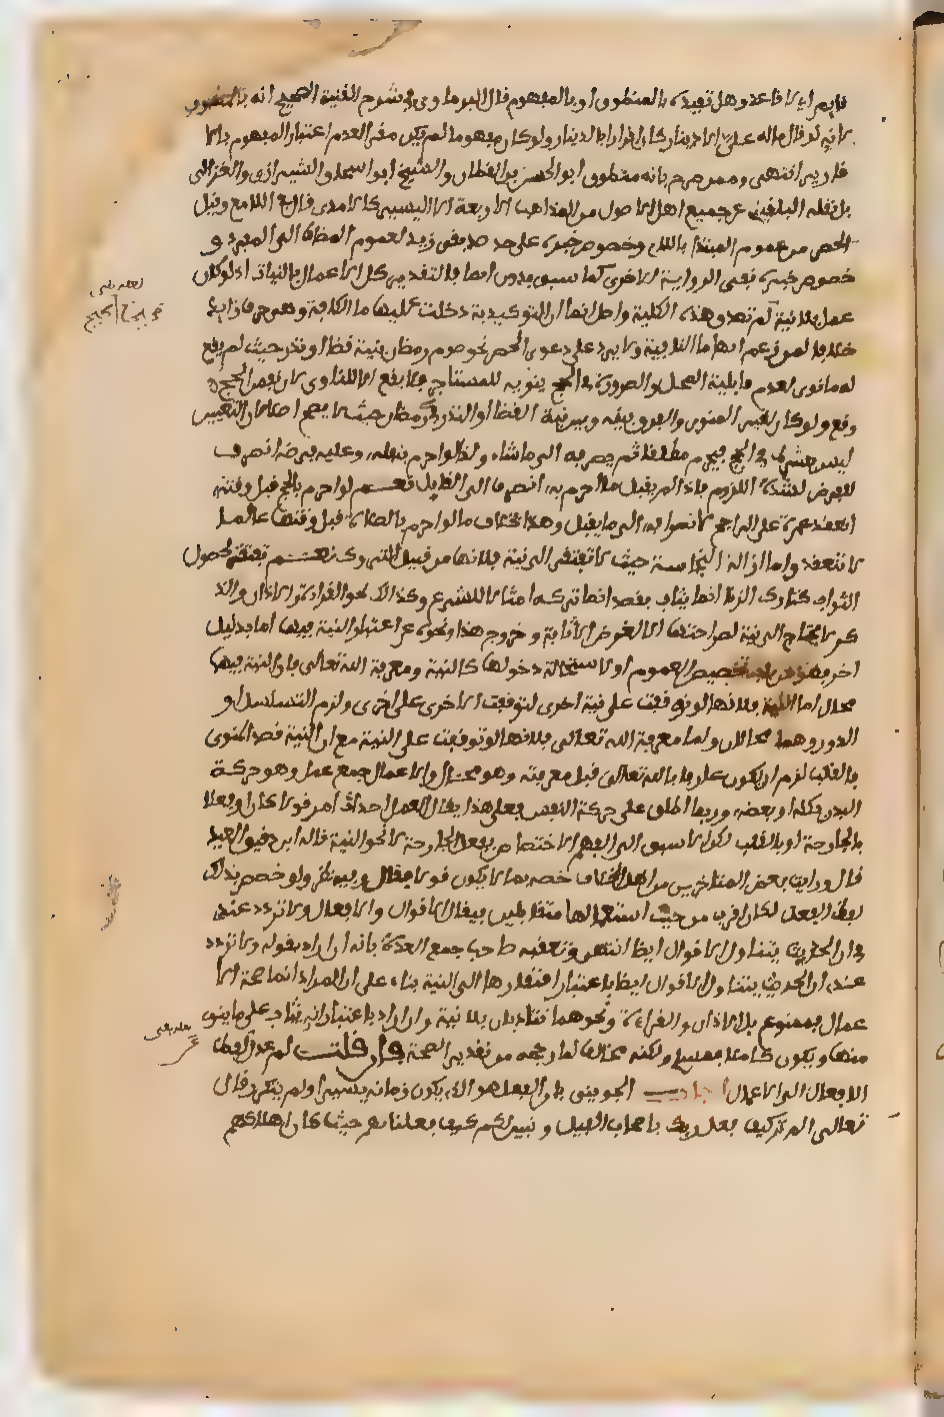 قايم الا قاعد وهل تفيده بالمنطوق او بالمفهوم قال البرماوي في شرح الفيته الصحيح انه بالمنطوق
لانه لو قال ماله علي الا دينار كان اقرارا بالدينار ولو كان مفهوما لم يكن مقرا لعدم اعتبار المفهوم بالا
قارير انتهى وممن صرح بانه منطوق ابو الحسن بن القطان والشيخ ابو اسحاق الشيرازي والغزالي
بل نقله البلقيني عن جميع اهل الاصول من المذاهب الاربعة الا اليسير كالامدي قال في اللامع وقيل
الحصر من عموم المبتدا باللام وخصوص خبره على حد صديقي زيد لعموم المضاف الى المفرد و
خصوص خبره ففي الرواية الاخرى كما سبق بدون انما فالتقدير كل الاعمال بالنيات اذ لو كان
عمل بلا نية لم تصدق هذه الكلية واصل انما ان التوكيدية دخلت عليها ما الكافة وهي حرف زايد
خلافا لمن زعم انها ما النافية ولا يرد على دعوى الحصر نحو صوم رمضان بنية قضا او نذر حيث لم يقع
له ما نوى لعدم قابلية المحل والضرورة في الحج ينويه للمستاجر فلا يقع الا للناوي لان نفس الحج
وقع ولو كان لغير المنوي والفرق بينه وبين نية القضا او النذر في رمضان حيث لا يصح اصلا ان التعيين
ليس بشرط في الحج فيحرم مطلقا ثم يصرفه الى ما شاء ولذا لو احرم بنفله وعليه فرضه انصرف
للفرض لشدة اللزوم فاذا لم يقبل ما احرم به انصرف الى القابل نعم لو احرم بالحج قبل وقته
انعقد عمرة على الراجح لانصرافه الى ما يقبل وهذا بخلاف ما لو احرم بالصلاة قبل وقتها عالما
لا تنعقد واما ازالة النجاسة حيث لا تفتقر الى نية فلانها من قبيل التروك نعم تفتقر لحصول
الثواب كتارك الزنا انما يثاب بقصد انه تركه امتثالا للشرع وكذلك نحو القراءة والاذان والذ
كر لا يحتاج الى نية لصراحتها الا لغرض الاثابة وخروج هذا ونحوه عن اعتبار النية فيها اما بدليل
اخر فهو من باب تخصيص العموم او لاستحالة دخولها كالنية ومعرفة الله تعالى فان النية فيهما
محال اما النية فلانها لو توقفت على نية اخرى لتوقفت الاخرى على اخرى ولزم التسلسل او
الدور وهما محالان واما معرفة الله تعالى فلانها لو توقفت على النية مع ان النية قصد المنوي
بالقلب لزم ان يكون عارفا بالله تعالى قبل معرفته وهو محال والاعمال جمع عمل وهو حركة
البدن بكله او بعضه وربما اطلق على حركة النفس فعلى هذا يقال العمل احداث امر قولا كان او فعلا
بالجارحة او بالقلب لكن الاسبق الى الفهم الاختصاص بفعل الجارحة لا نحو النية قاله ابن دقيق العيد
قال ورايت بعض المتاخرين من اهل الخلاف خصه بما لا يكون قولا فقال وفيه نظر ولو خصص بذلك
لفظ الفعل لكان اقرب من حيث استعمالها متقابلين فيقال الاقوال والافعال ولا تردد عندي
في ان الحديث يتناول الاقوال ايضا انتهى وتعقبه صاحب جمع العدة بانه ان اراد بقوله ولا تردد
عندي ان الحديث يتناول الاقوال ايضا باعتبار افتقارها الى النية بناء على ان المراد انما صحة الا
عمال فممنوع بل الاذان والقراءة ونحوهما تتادى بلا نية وان اراد باعتبار انه يثاب على ما ينوي
منها ويكون كاملا فمسلم ولكنه مخالف لما رجحه من تقدير الصحة فان قلت لم عدل عن لفظ
الافعال الى الاعمال اجاب الجويني بان الفعل هو الذي يكون زمانه يسيرا ولم يتكرر قال
تعالى الم تر كيف فعل ربك باصحاب الفيل وتبين لكم كيف فعلنا بهم حيث كان اهلاكهم